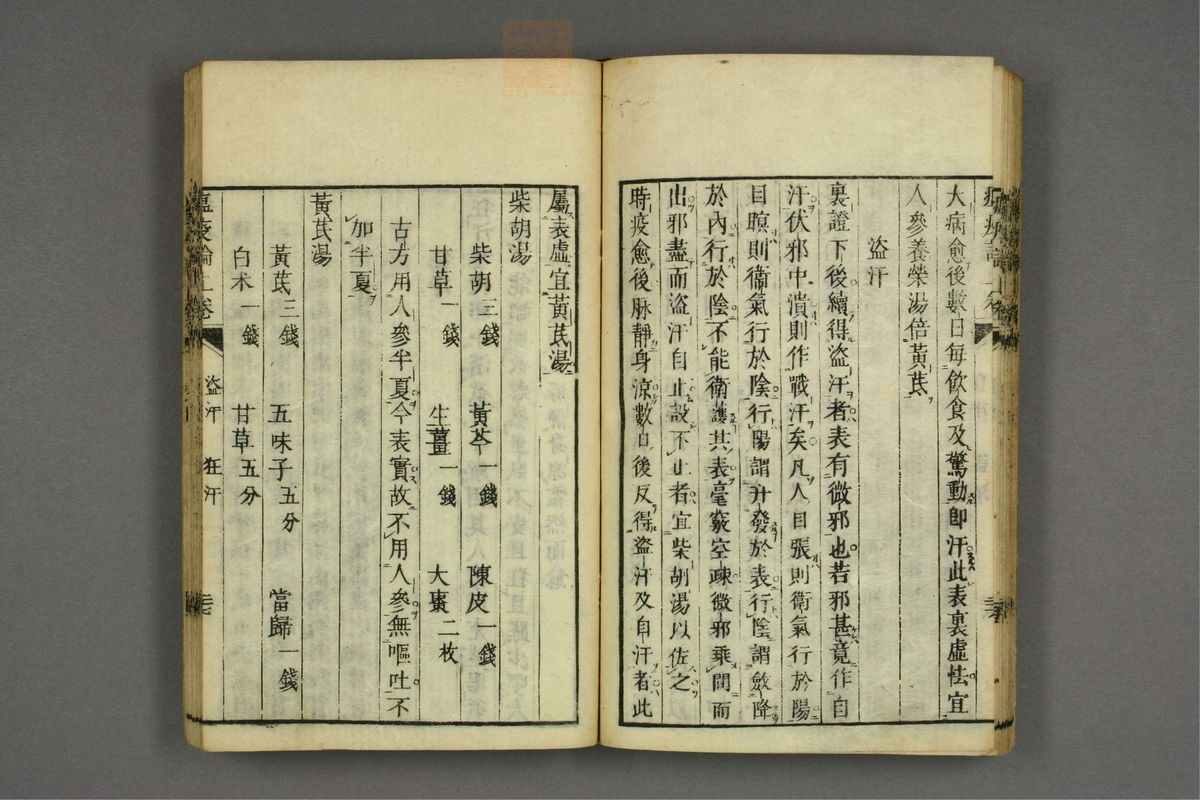 大病愈後數日每飲食及驚動即汗此表裏虛怯宜
人參養榮湯倍黃芪
盜汗
裏證下後續得盜汗者表有微邪也若邪甚竟作自
汗伏邪中潰則作戰汗矣凡人目張則衛氣行於陽
目瞑則衛氣行於陰行陽謂升發於表行陰謂斂降
於內行於陰不能衛護其表毫竅空疎微邪乘間而
出邪盡而盜汗自止設不止者宜柴胡湯以佐之
時疫愈後脉靜身涼數日後反得盜汗及自汗者此
屬表虛宜黃芪湯
柴胡湯
柴胡三錢 黃芩一錢 陳皮一錢
甘草一錢 生薑一錢 大棗二枚
古方用人參半夏今表實故不用人參無嘔吐不
加半夏
黃芪湯
黃芪三錢 五味子五分 當歸一錢
白朮一錢 甘草五分
瘟疫論上卷 盜汗 狂汗